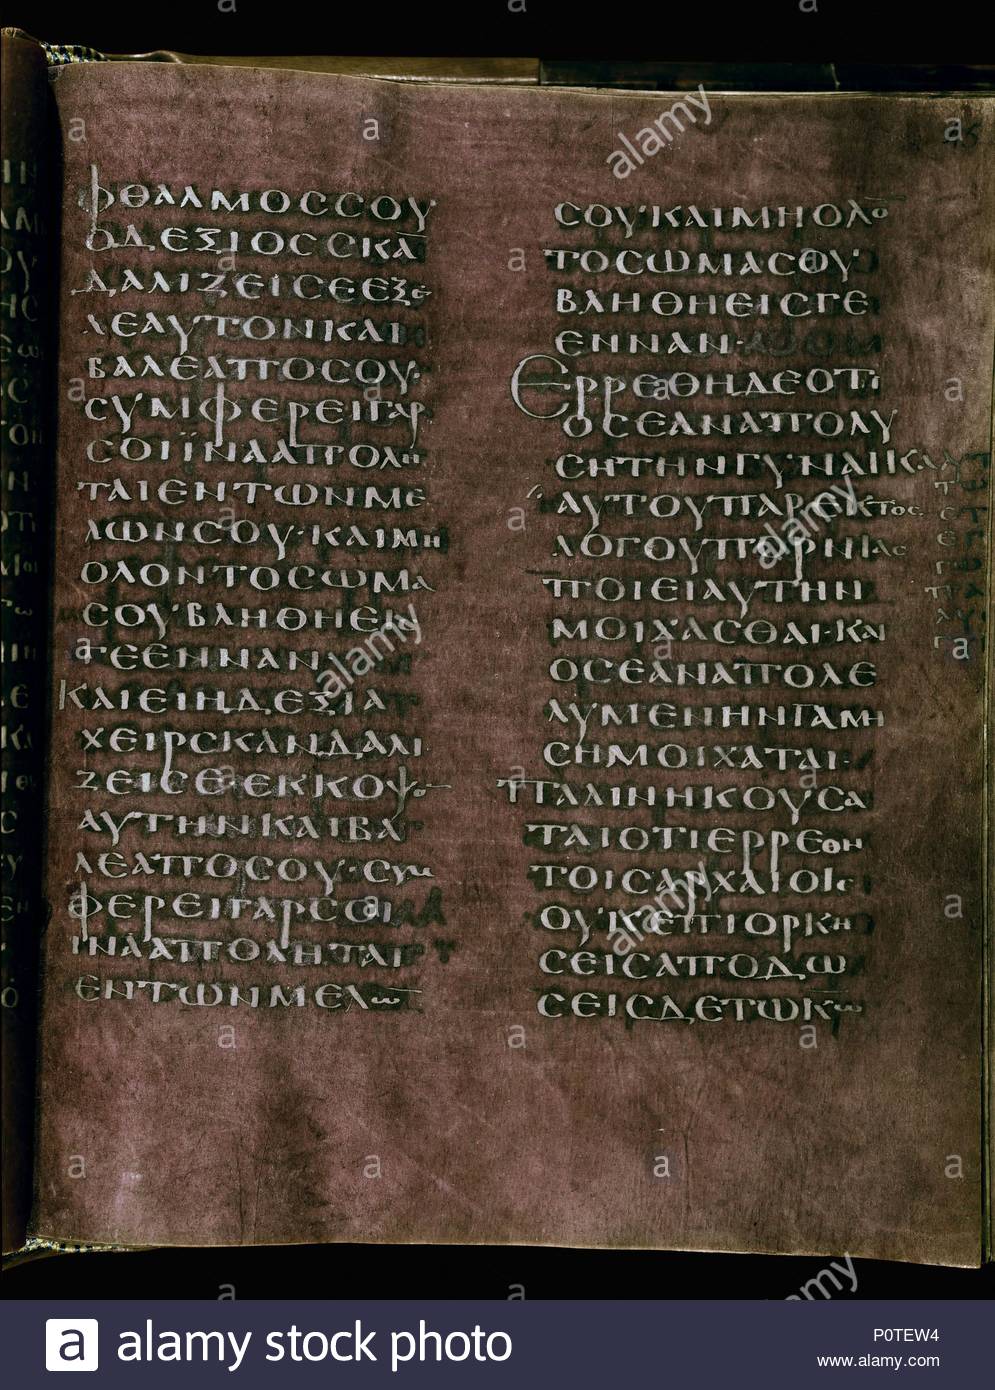 ΦΘΑΛΜΟCCΟΥ
ΟΔΕΞΙΟCCΚΑ̅
ΔΑΛΙΖΕΙCΕΕΞΕ
ΛΕΑΥΤΟΝΚΑΙ
ΒΑΛΕΑΠΟCΟΥ·
CΥΜΦΕΡΕΙΓΑΡ
CΟΙΪΝΑΑΠΟΛΗ
ΤΑΙΕΝΤΩΝΜΕ
ΛΩΝCΟΥ·ΚΑΙΜΗ
ΟΛΟΝΤΟCΩΜΑ
CΟΥΒΛΗΘΗΕΙC
ΓΕΕΝΝΑΝ
ΚΑΙΕΙΗΔΕΞΙΑ
ΧΕΙΡCΚΑΝΔΑΛΙ
ΖΕΙCΕ·ΕΚΚΟΨΟ̅
ΑΥΤΗΝΚΑΙΒΑ
ΛΕΑΠΟCΟΥ·CΥΜ
ΦΕΡΕΙΓΑΡCΟΙ
ΙΝΑΑΠΟΛΗΤΑΙ
ΕΝΤΩΝΜΕΛΩ̅
CΟΥ·ΚΑΙΜΗΟΛΟ̅
ΤΟCΩΜΑCΟΥ
ΒΛΗΘΗΕΙCΓΕ
ΕΝΝΑΝ·
ΕΡΡΕΘΗΔΕΟΤΙ
ΟCΕΑΝΑΠΟΛΥ
CΗΤΗΝΓΥΝΑΙΚΑ
ΑΥΤΟΥΠΑΡΕΚΤΟC
ΛΟΓΟΥΠΟΡΝΙΑC
ΠΟΙΕΙΑΥΤΗΝ
ΜΟΙΧΑCΘΑΙ·ΚΑΙ
ΟCΕΑΝΑΠΟΛΕ
ΛΥΜΕΝΗΝΓΑΜΗ
CΗΜΟΙΧΑΤΑΙ·
ΠΑΛΙΝΗΚΟΥCΑ
ΤΑΙΟΤΙΕΡΡΕΘΗ
ΤΟΙCΑΡΧΑΙΟΙC
ΟΥΚΕΠΙΟΡΚΗ
CΕΙCΑΠΟΔΩ
CΕΙCΔΕΤΩΚΩ̅
alamy
alamy
alamy
alamy
alamy
a alamy stock photo
P0TEW4
www.alamy.com